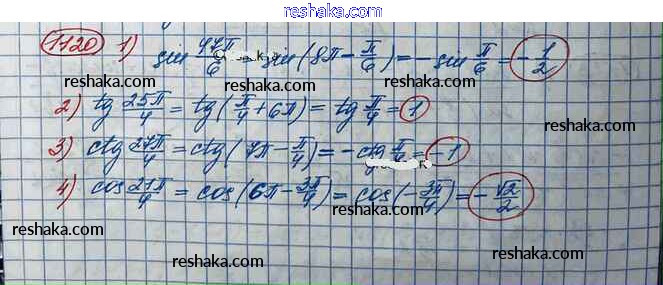 reshaka.com
1120 1) sin 47π/6 = sin(8π - π/6) = -sin π/6 = -1/2
reshaka.com reshaka.com
2) tg 25π/4 = tg(π/4 + 6π) = tg π/4 = 1
reshaka.com reshaka.com
3) ctg 27π/4 = ctg(7π - π/4) = -ctg π/4 = -1
reshaka.com
4) cos 21π/4 = cos(6π - 3π/4) = cos(-3π/4) = -√2/2
reshaka.com reshaka.com
reshaka.com reshaka.com
reshaka.com